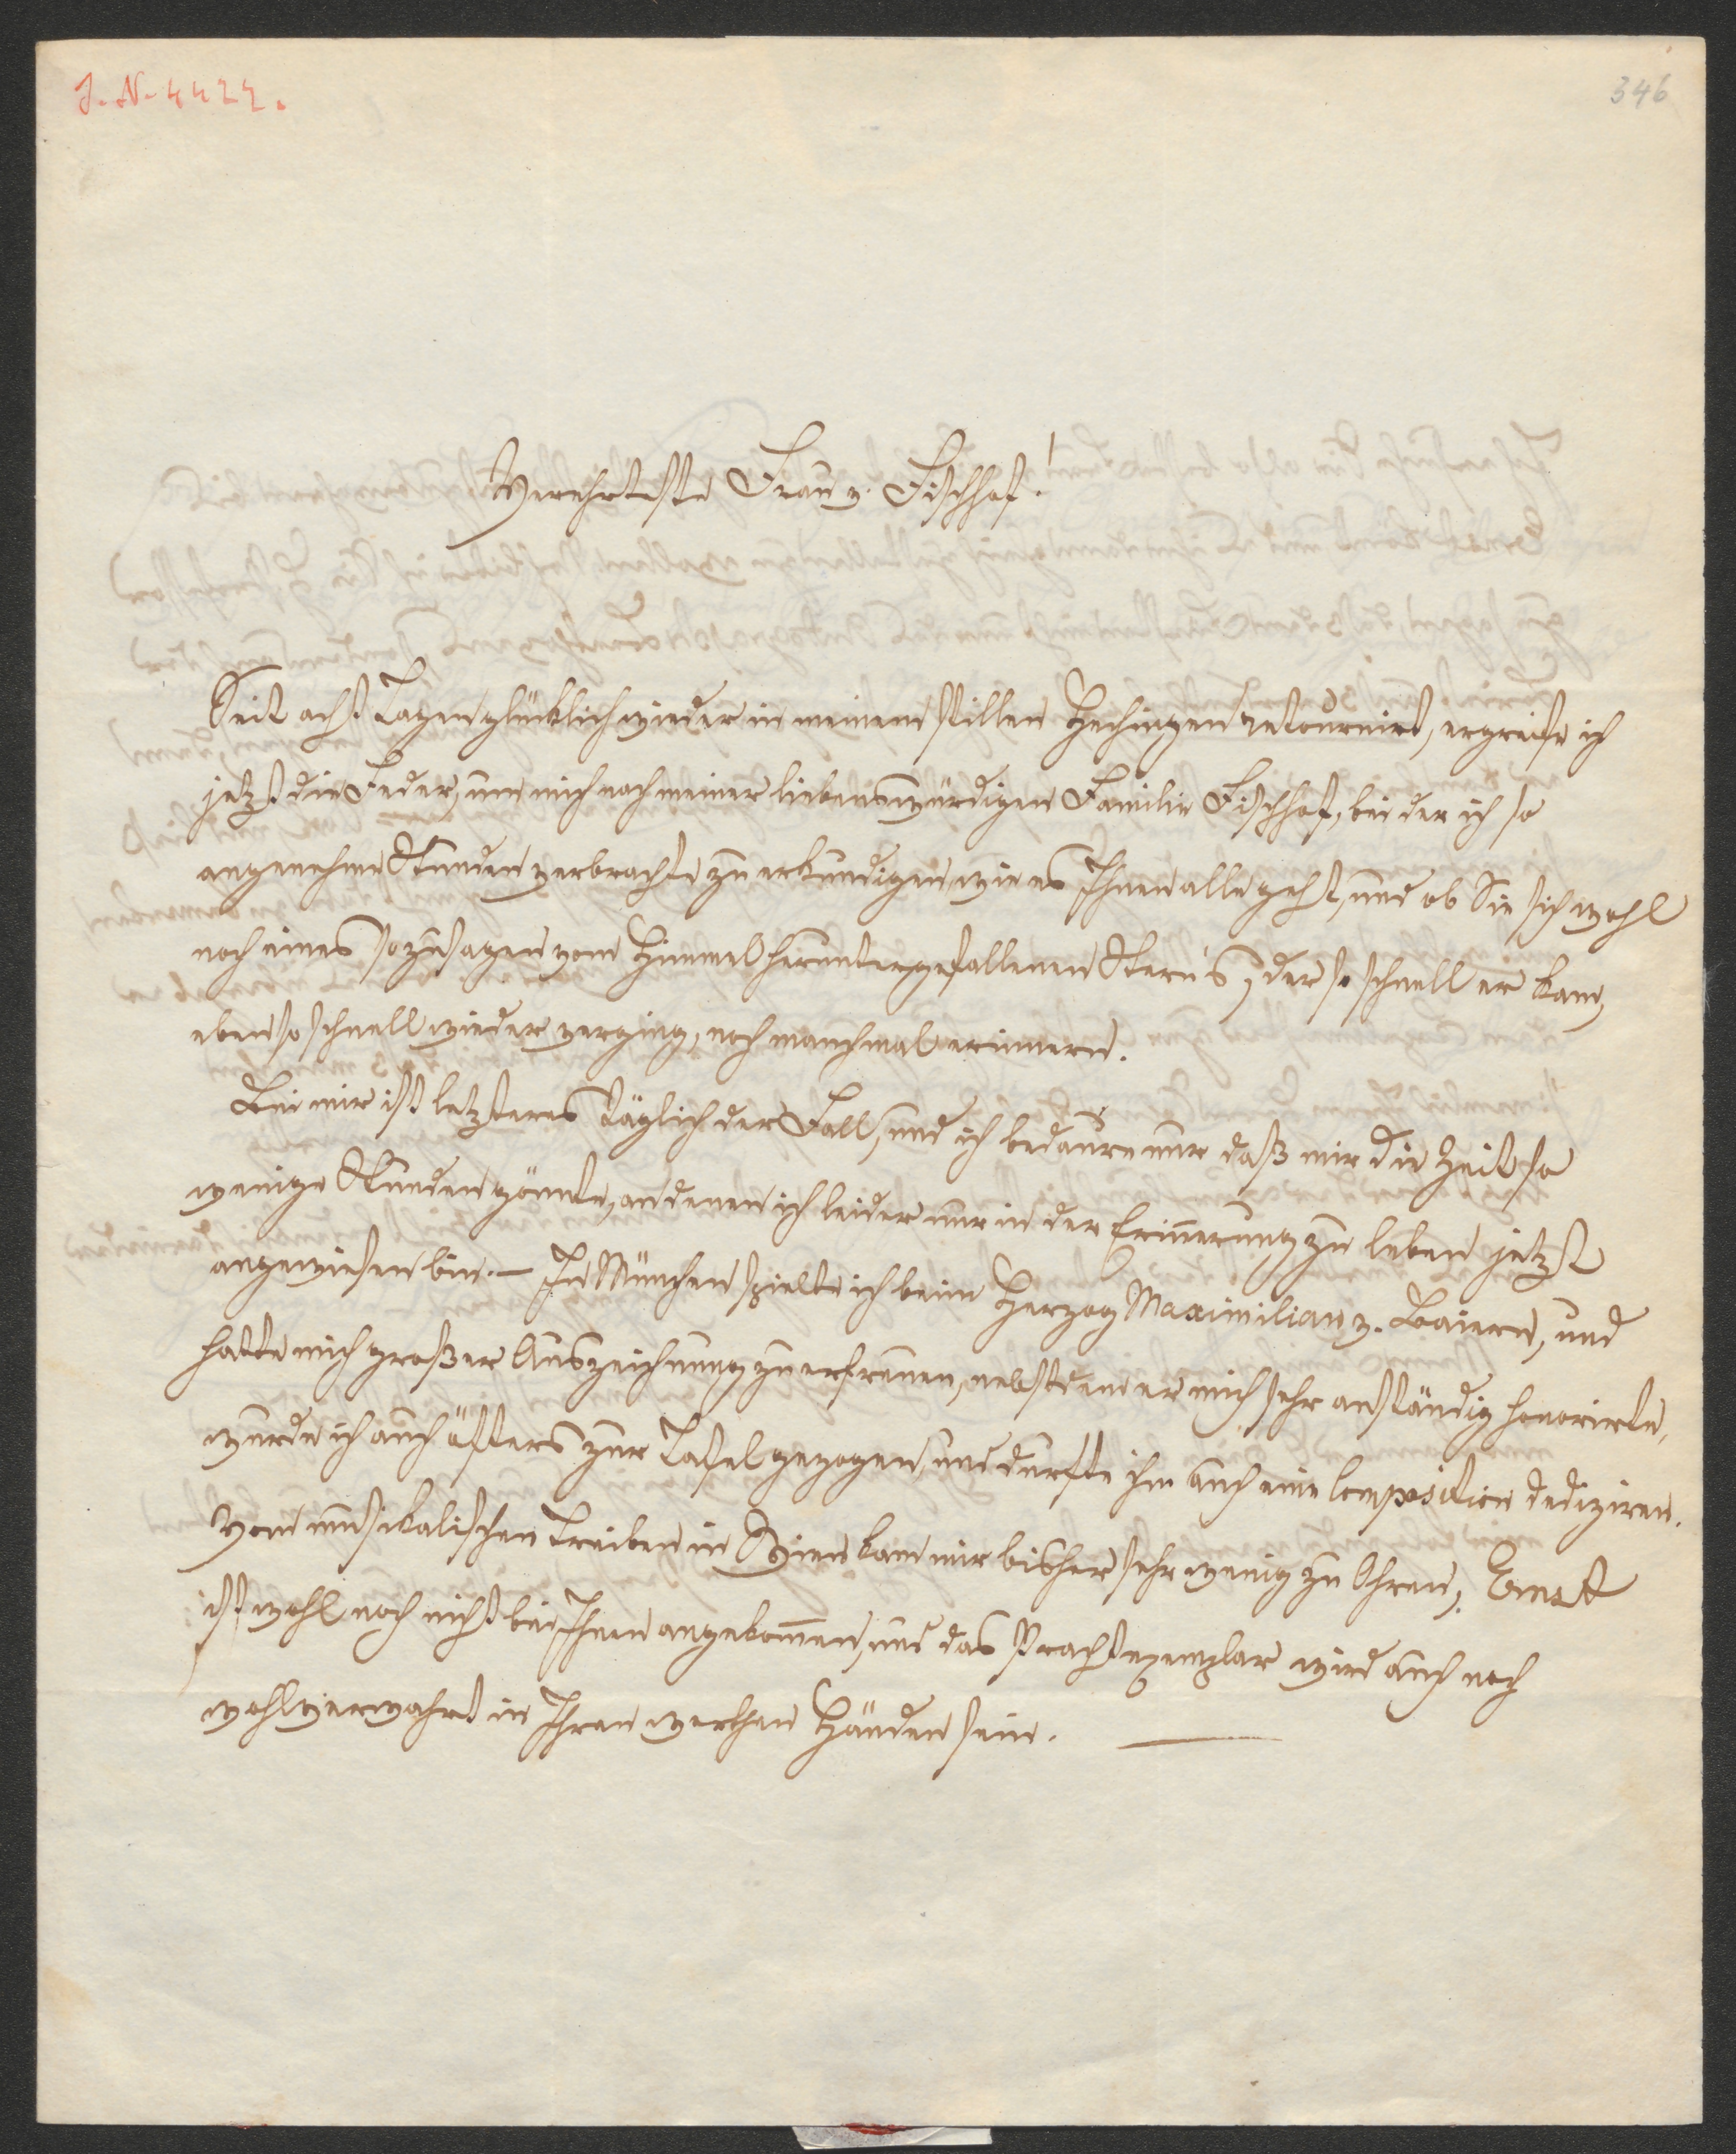 J. N. 4422.
346
Verehrteste Frau v. Fischhof!
Seit acht Tagen glücklich wieder in meinem stillen Hechingen retournirt, ergreife ich
jetzt die Feder, um mich nach meiner liebenswürdigen Familie Fischhof, bei der ich so
angenehme Stunden verbrachte zu erkundigen, wie es Ihnen alle geht, und ob Sie sich wohl
noch eines sozusagen vom Himmel heruntergefallenen Stern's, der so schnell er kam,
eben so schnell wieder verging, noch manchmal erinnern.
Bei mir ist letzteres täglich der Fall, und ich bedaure nur daß mir die Zeit so
wenige Stunden gönnte, an denen ich leider nur in der Erinnerung zu leben jetzt
angewiesen bin. — In München spielte ich beim Herzog Maximilian v. Baiern, und
hatte mich großer Auszeichnung zu erfreuen, nebstdem er mich sehr anständig honorirte,
wurde ich auch öfters zur Tafel gezogen, und durfte ihm auch eine Composition dediziren.
Vom musikalischen Treiben in Wien kam mir bisher sehr wenig zu Ohren, Ernst
ist wohl noch nicht bei Ihnen angekommen, und das Prachtexemplar wird auch noch
wohlverwahrt in Ihren werthen Händen sein. —